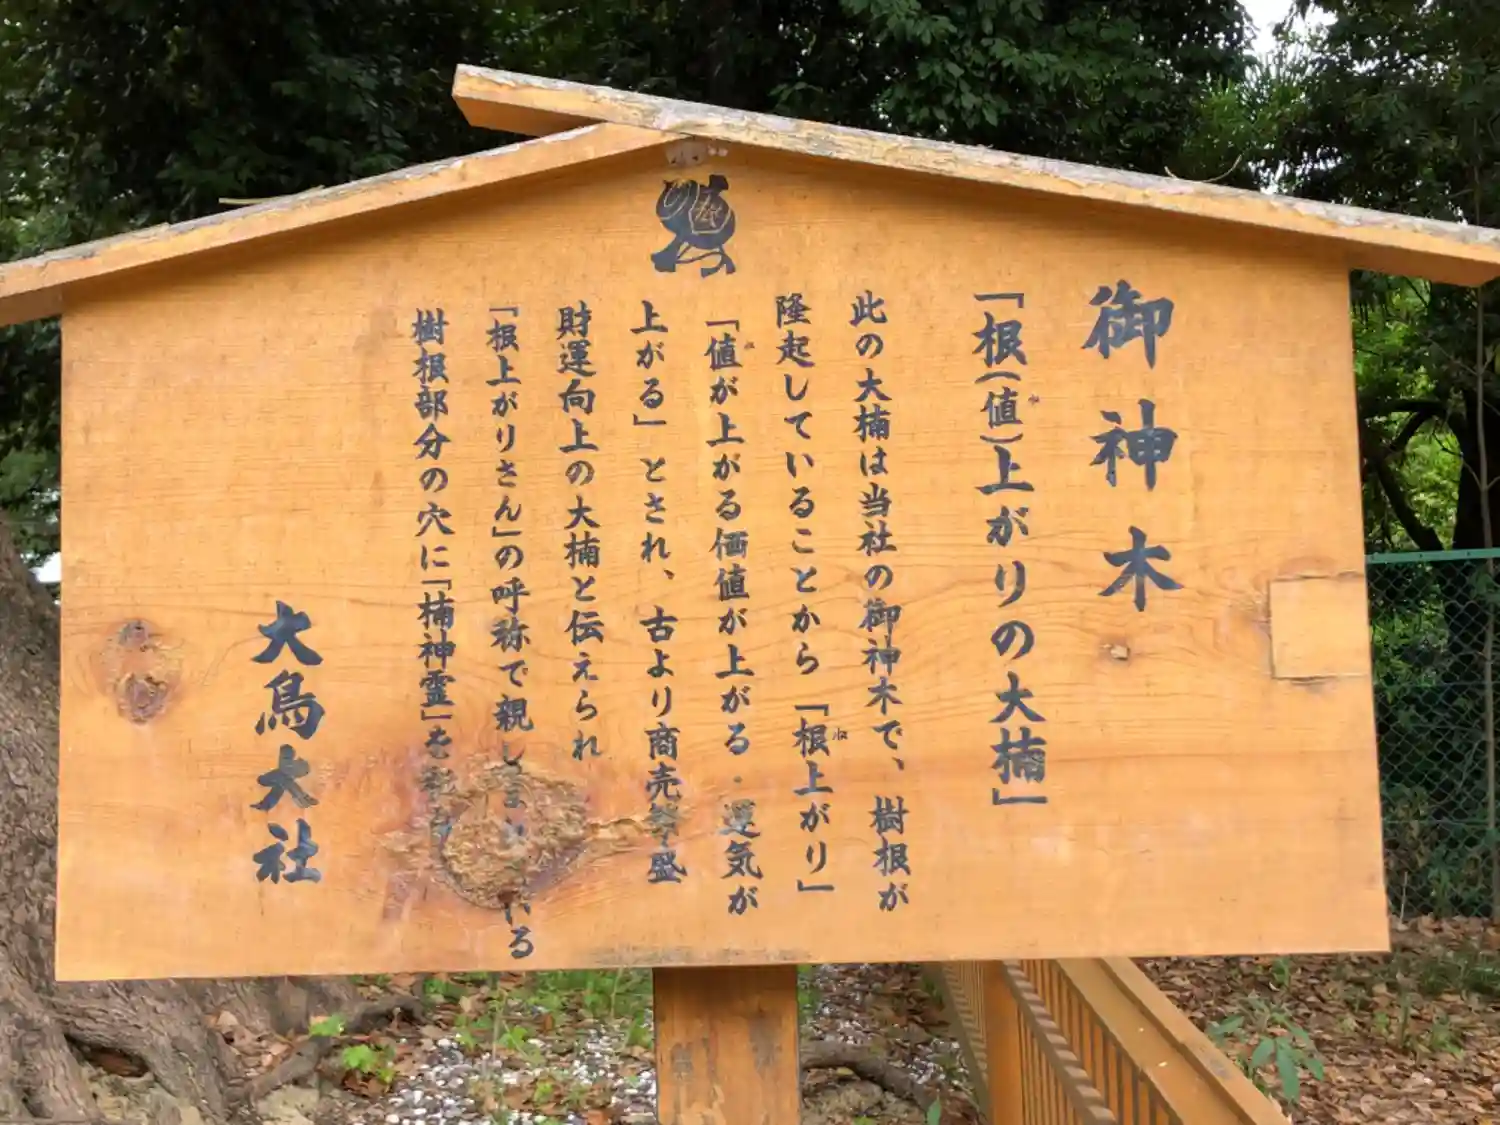 御神木
「根(値)上がりの大楠」
此の大楠は当社の御神木で、樹根が
隆起していることから「根上がり」
「値が上がる価値が上がる・運気が
上がる」とされ、古より商売繁盛
財運向上の大楠と伝えられ
「根上がりさん」の呼称で親しまれている
樹根部分の穴に「楠神霊」を
大鳥大社